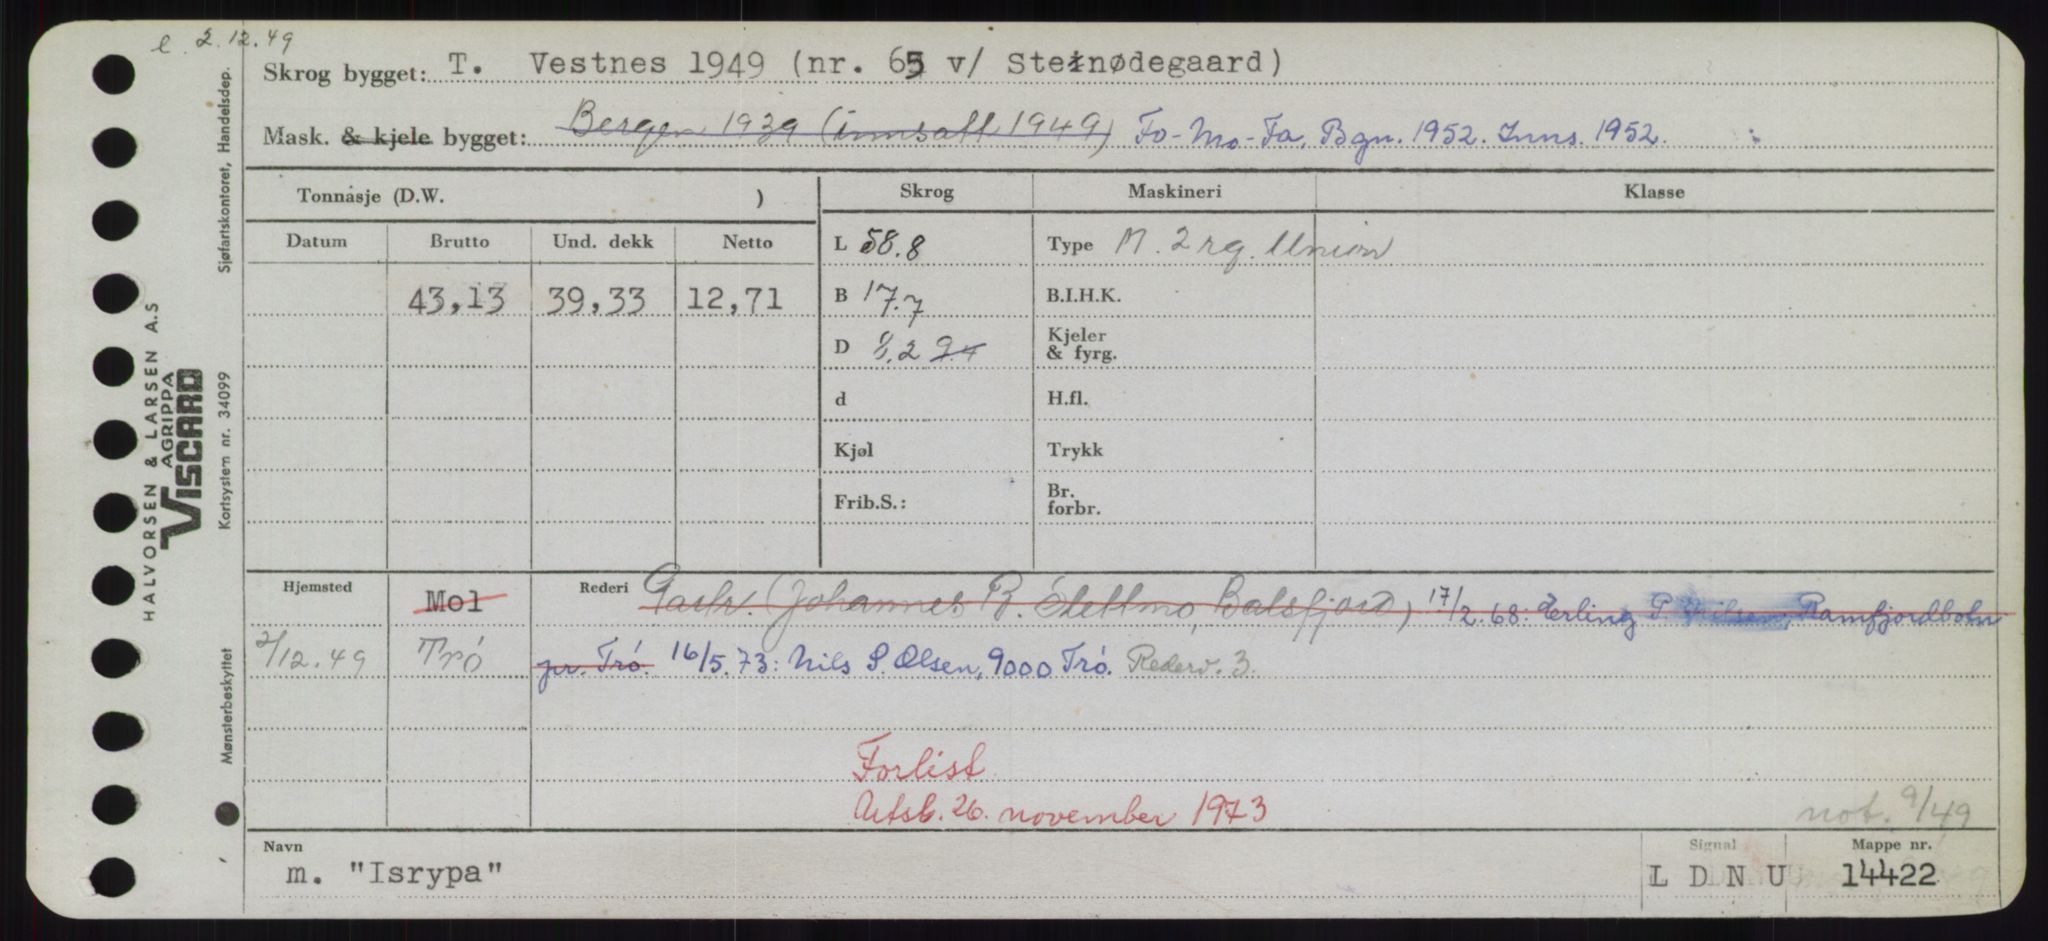 e. 2.12.49
Skrog bygget: T. Vestnes 1949 (nr. 65 v/ Steinødegaard)
Mask. & kjele bygget: Bergen 1939 (innsatt 1949) Fo-Mo-Fa, Bgn. 1952. Inns. 1952.
Tonnasje (D.W. ) Skrog Maskineri Klasse
Datum Brutto Und. dekk Netto L 58.8 Type M. 2 rg. Union
43,13 39,33 12,71 B 17.7 B.I.H.K.
D 8.2 9.4 Kjeler & fyrg.
d H.fl.
Kjøl Trykk
Frib.S.: Br. forbr.
Hjemsted Mol Rederi Partr. (Johannes B. Slettmo, Balsfjord) 17/2.68: Erling P. Nilsen, Ramfjordbotn
2/12.49 Trö pr. Trö. 16/5.73: Nils S. Olsen, 9000 Trö. Rederv. 3.
Forlist
Utsl. 26. november 1973
not. 9/49
Navn Signal Mappe nr.
m. "Isrypa" L D N U 14422
HALVORSEN & LARSEN A.S
AGRIPPA
VISCARD
Sjøfartskontoret, Handelsdep.
Kortsystem nr. 34099
Mønsterbeskyttet